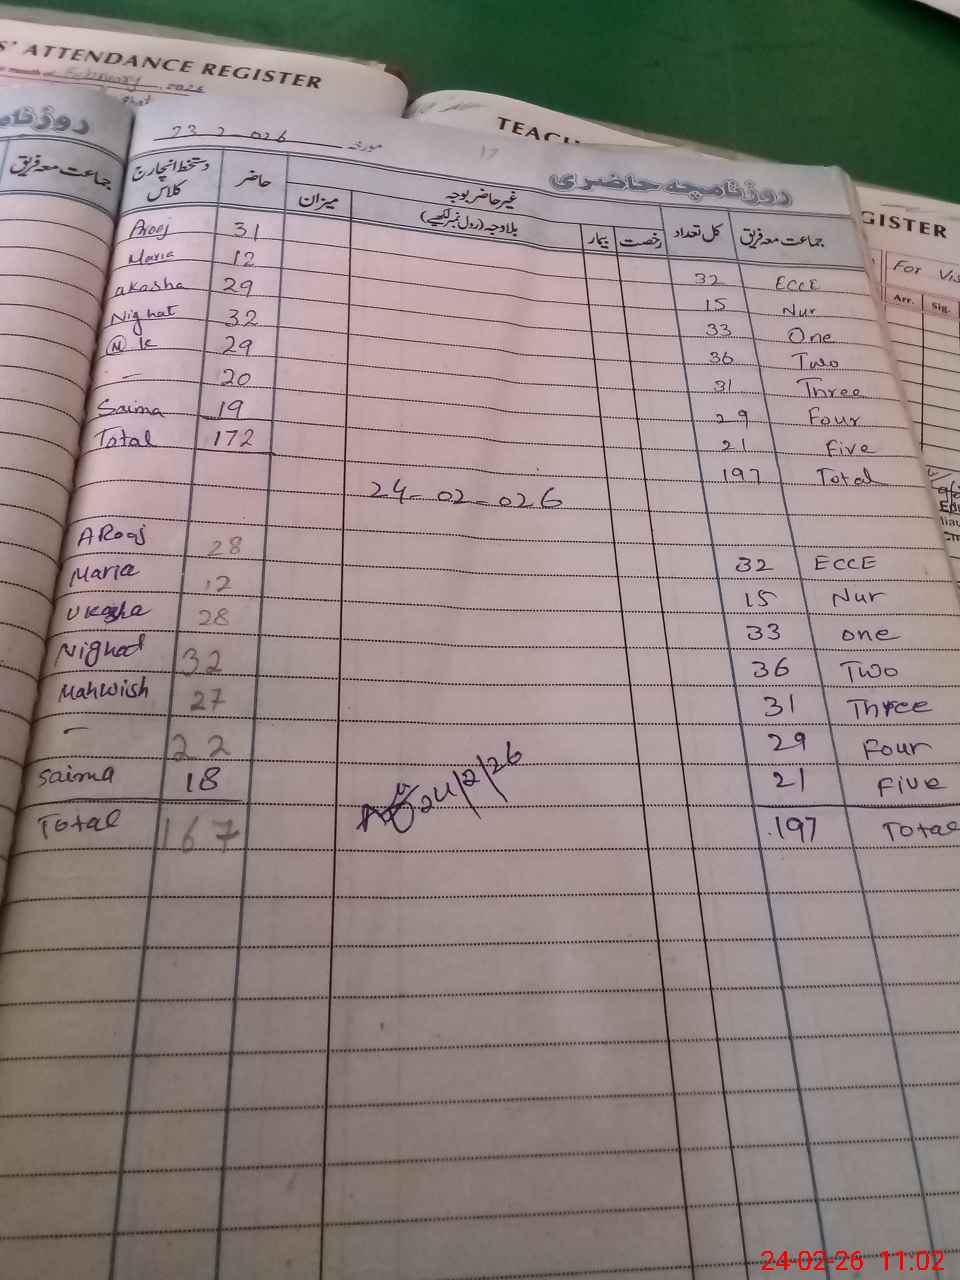 S' ATTENDANCE REGISTER
month of February 2026
TEAC
GISTER
For Vis
Arr. Sig.
23-2-026 مورخہ
17
روزنامچہ حاضری
جماعت معہ فریق
جماعت معہ فریق کل تعداد غیر حاضر بوجہ حاضر دستخط انچارج کلاس
رخصت بیمار بلاوجہ (رول نمبر لکھیے) میزان
Arooj 31 32 ECCE
Maria 12 15 Nur
akasha 29 33 One
Nighat 32 36 Two
M k 29 31 Three
— 20 29 Four
Saima 19 21 Five
Total 172 197 Total
24-02-026
ARooj 28 32 ECCE
Maria 12 15 Nur
Ukasha 28 33 one
Nighat 32 36 Two
Mahwish 27 31 Three
— 22 29 Four
Saima 18 21 Five
24/2/26
Total 167 197 Total
24-02-26 11:02